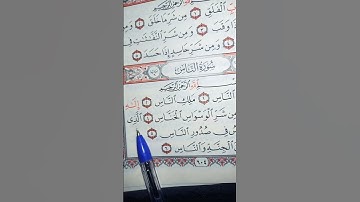 الْفَلَقِ ۝١ مِن شَرِّ مَا خَلَقَ ۝٢
وَقَبَ ۝٣ وَمِن شَرِّ النَّفَّٰثَٰتِ فِي
۝٤ وَمِن شَرِّ حَاسِدٍ إِذَا حَسَدَ ۝٥
سُورَةُ النَّاسِ
النَّاسِ ۝١ مَلِكِ النَّاسِ ۝٢ إِلَٰهِ
مِن شَرِّ الْوَسْوَاسِ الْخَنَّاسِ ۝٤ الَّذِي
فِي صُدُورِ النَّاسِ ۝٥
الْجِنَّةِ وَالنَّاسِ ۝٦
٦٠٤